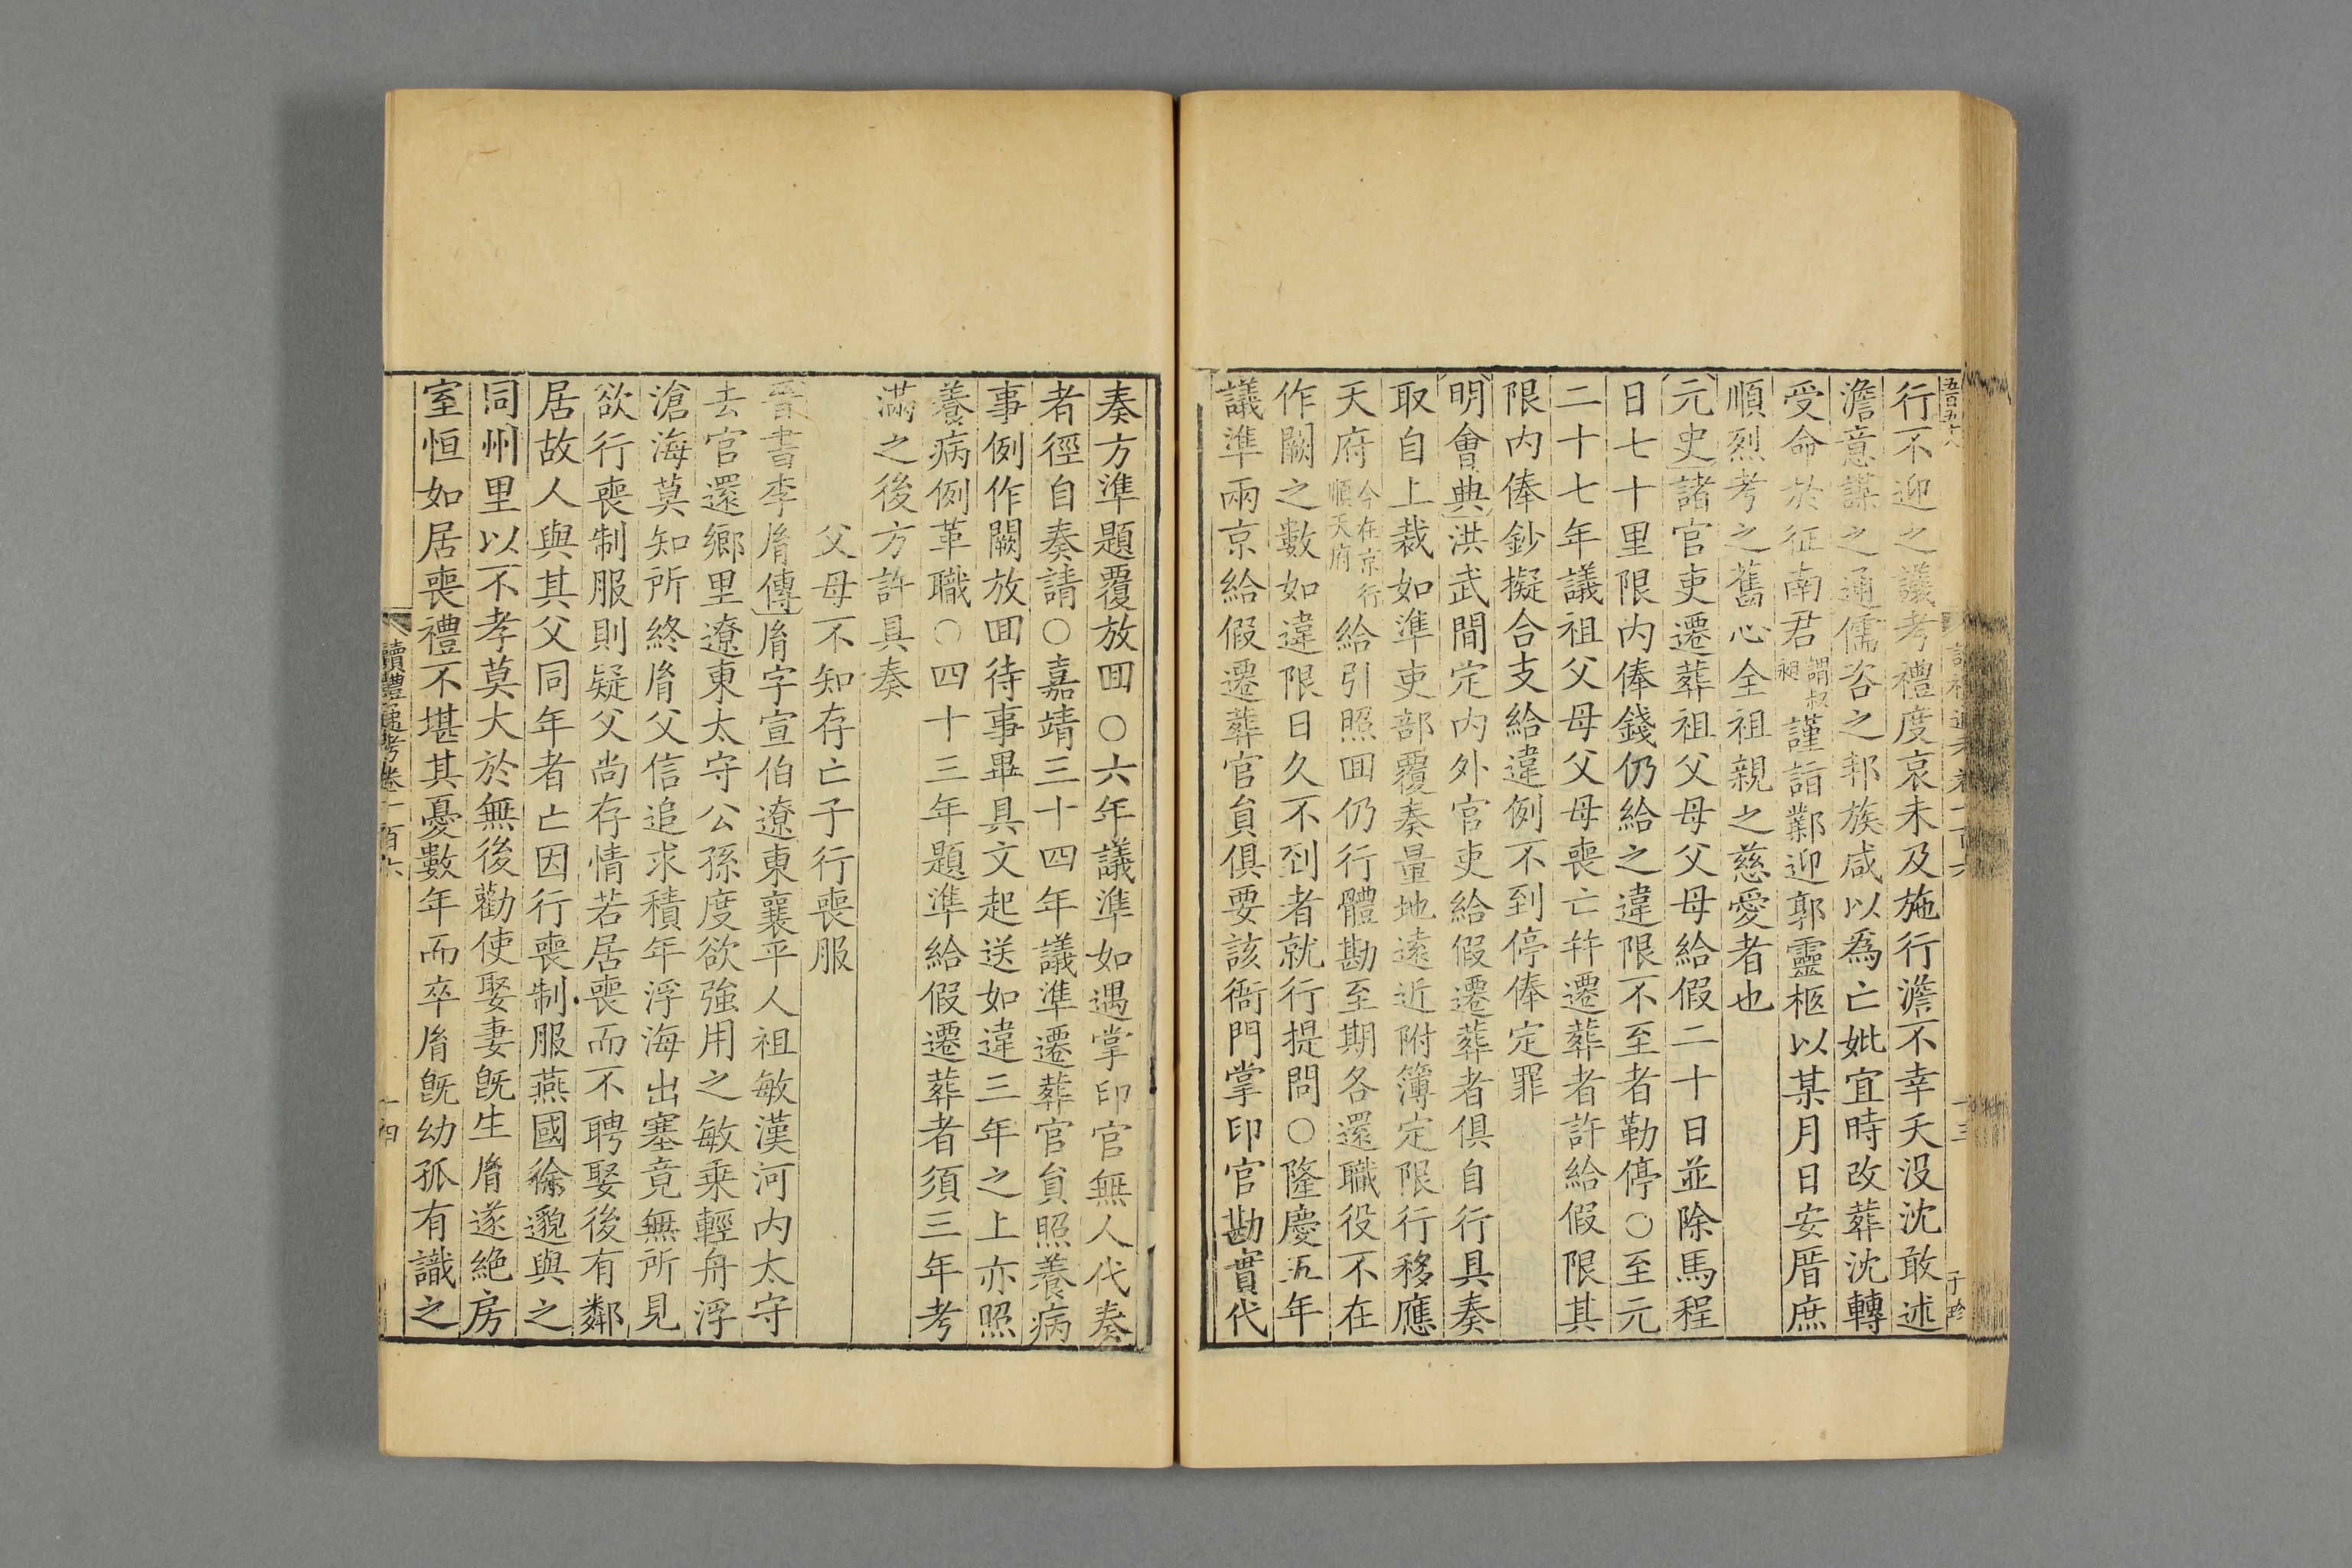 行不迎之議考禮度哀未及施行澹不幸夭没沈敢述
澹意謀之通儒咨之郭族咸以爲亡妣宜時改葬沈轉
受命於征南君謂叔昶謹詣鄴迎郭靈柩以某月日安厝庶
順烈考之舊心全祖親之慈愛者也
元史諸官吏遷葬祖父母父母給假二十日並除馬程
日七十里限内俸錢仍給之違限不至者勒停○至元
二十七年議祖父母父母喪亡幷遷葬者許給假限其
限内俸鈔擬合支給違例不到停俸定罪
明會典洪武間定内外官吏給假遷葬者俱自行具奏
取自上裁如準吏部覆奏量地遠近附簿定限行移應
天府今在京行順天府給引照囬仍行體勘至期各還職役不在
作闕之數如違限日久不到者就行提問○隆慶五年
議準兩京給假遷葬官貟俱要該衙門掌印官勘實代
奏方準題覆放囬○六年議準如遇掌印官無人代奏
者徑自奏請○嘉靖三十四年議準遷葬官貟照養病
事例作闕放囬待事畢具文起送如違三年之上亦照
養病例革職○四十三年題準給假遷葬者須三年考
滿之後方許具奏
父母不知存亡子行喪服
晉書李胤傳胤字宣伯遼東襄平人祖敏漢河内太守
去官還鄉里遼東太守公孫度欲強用之敏乘輕舟浮
滄海莫知所終胤父信追求積年浮海出塞竟無所見
欲行喪制服則疑父尚存情若居喪而不聘娶後有鄰
居故人與其父同年者亡因行喪制服燕國徐邈與之
同州里以不孝莫大於無後勸使娶妻旣生胤遂絶房
室恒如居喪禮不堪其憂數年而卒胤旣幼孤有識之
讀禮通考卷一百六
十四